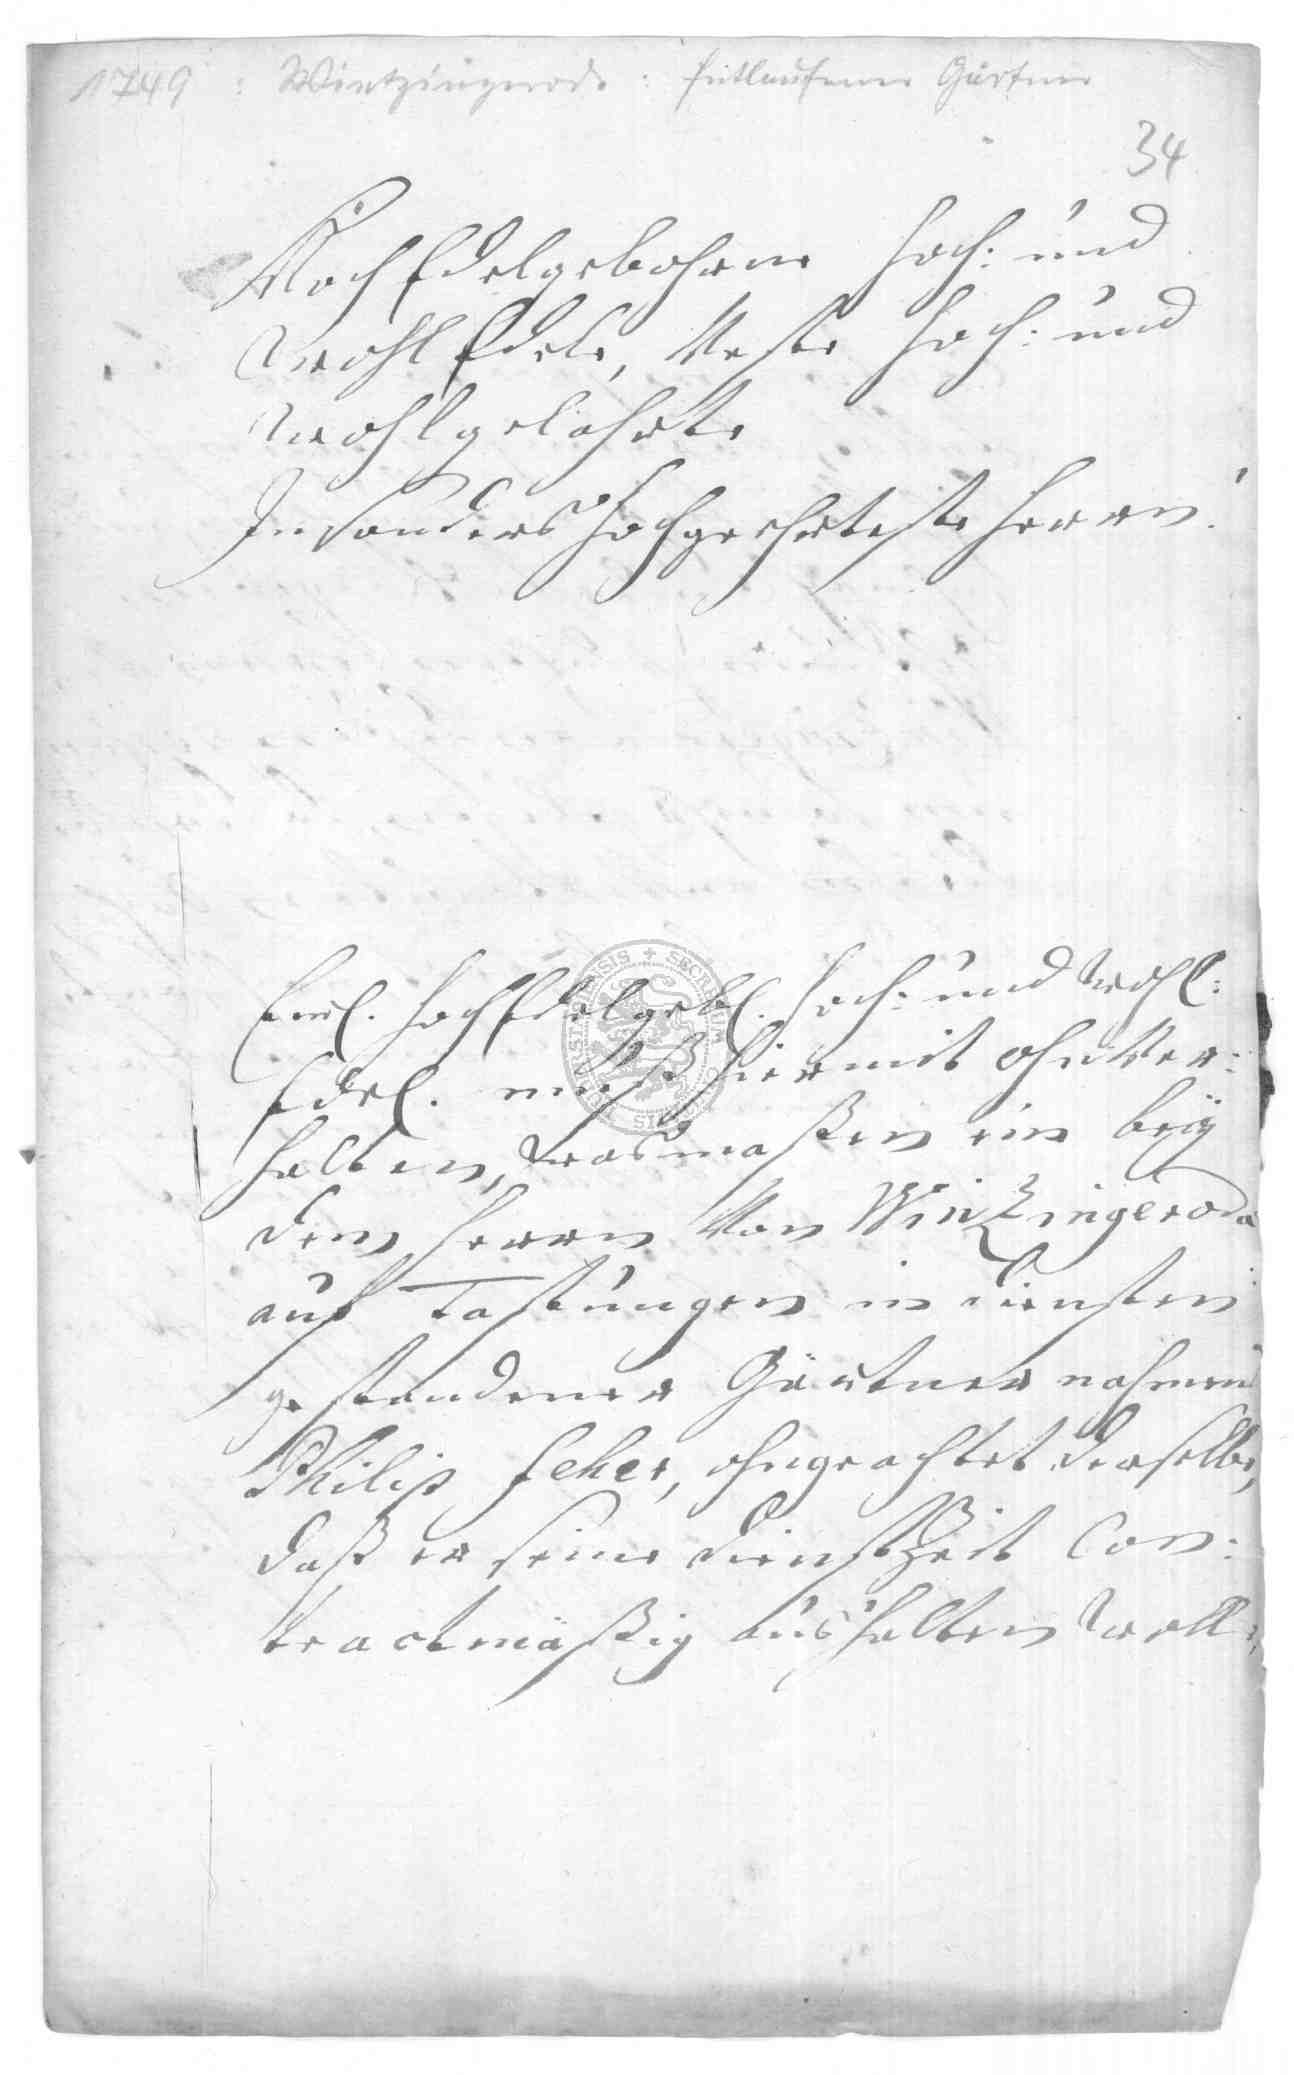 1749 : Wintzingerode : Entlaufener Gärtner
34
HochEdelgebohrne Hoch: und
WohlEdele, Veste Hoch: und
Wohlgelahrte
Insonders Hochgeehrteste Herren!
Ewl. HochEdelgebl. Hoch: und Wohl:
Edel. muß hiermit ohnver:
halten, wasmaßen ein beÿ
dem Herrn Von Winzingeroda
auf Tastungen in Diensten
gestandener Gärtner nahmens
Philip Feher, ohngeachtet derselbe,
daß er seine DienstZeit Con:
tractmäßig aushalten wolle,
SECRETUM